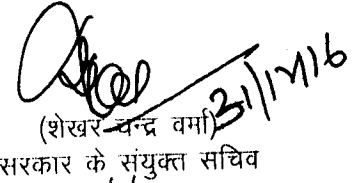 31/12/16
(शेखर चन्द्र वर्मा)
सरकार के संयुक्त सचिव